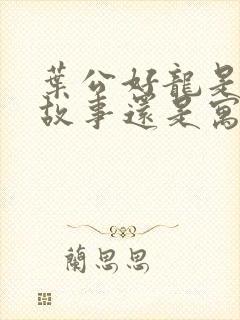 葉公好龍是
故事還是寓
蘭思思